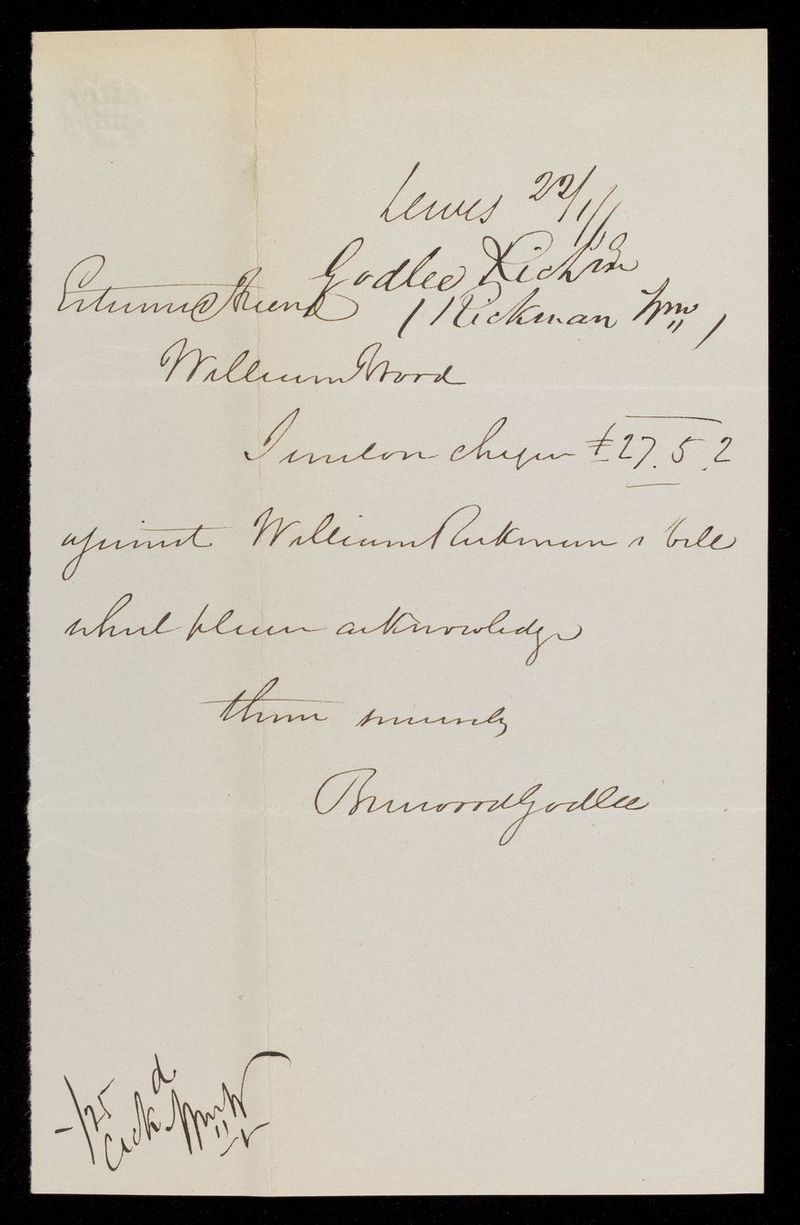 Lewes 22/1/
Godlee Rickman
Esteemed Friend
(Rickman Wm)
William Wood
I enclose cheque £27.5.2
against William Rickman s bill
which please acknowledge
thine sincerely
Burwood Godlee
-/25
Ackd Wm W